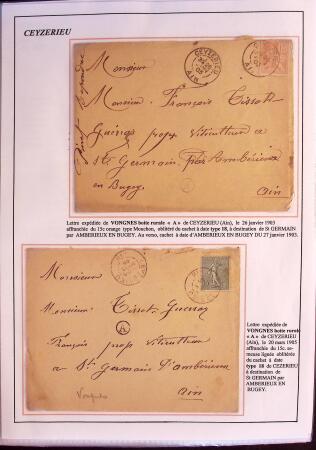 CEYZERIEU
CEYZERIEU
AIN
Monsieur
Monsieur François Tissot
Guénas propr Viticulteur a
St Germain, par Ambérieux
en Bugey.
Ain
Lettre expédiée de VONGNES boite rurale « A » de CEYZERIEU (Ain), le 26 janvier 1903
affranchie du 15c orange type Mouchon, oblitéré du cachet à date type 18, à destination de St GERMAIN
par AMBERIEUX EN BUGEY. Au verso, cachet à date d'AMBERIEUX EN BUGEY DU 27 janvier 1903.
Monsieur
Monsieur Tissot
A
François propr Viticulteur
a St Germain d'Ambérieux
Ain
Vongnes
Lettre expédiée de
VONGNES boite rurale
« A » de CEYZERIEU
(Ain), le 20 mars 1905
affranchie du 15c. se-
meuse lignée oblitérée
du cachet à date
type 18 de CEZERIEU
à destination de
St GERMAIN par
AMBERIEUX EN
BUGEY.